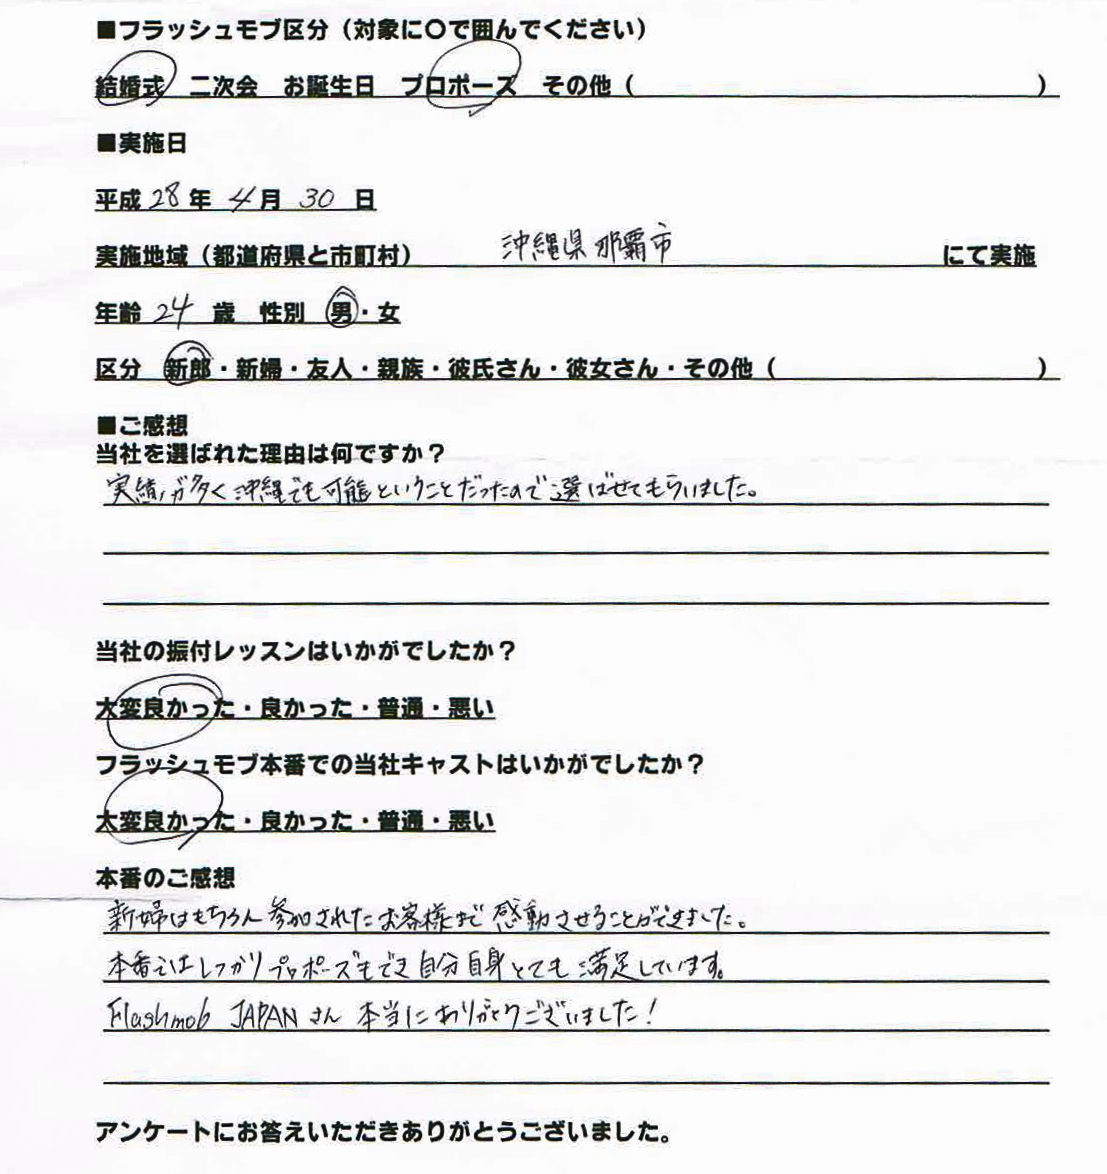 ■フラッシュモブ区分（対象に〇で囲んでください）
結婚式　二次会　お誕生日　プロポーズ　その他（　　　　　　　　　　）
■実施日
平成 28 年 4 月 30 日
実施地域（都道府県と市町村）　沖縄県那覇市　にて実施
年齢 24 歳　性別　男・女
区分　新郎・新婦・友人・親族・彼氏さん・彼女さん・その他（　　　　　　　　　　）
■ご感想
当社を選ばれた理由は何ですか？
実績が多く沖縄でも可能ということだったので選ばせてもらいました。
当社の振付レッスンはいかがでしたか？
大変良かった・良かった・普通・悪い
フラッシュモブ本番での当社キャストはいかがでしたか？
大変良かった・良かった・普通・悪い
本番のご感想
新婦はもちろん参加されたお客様まで感動させることができました。
本番ではしっかりプロポーズもでき自分自身とても満足しています。
Flashmob JAPANさん本当にありがとうございました！
アンケートにお答えいただきありがとうございました。